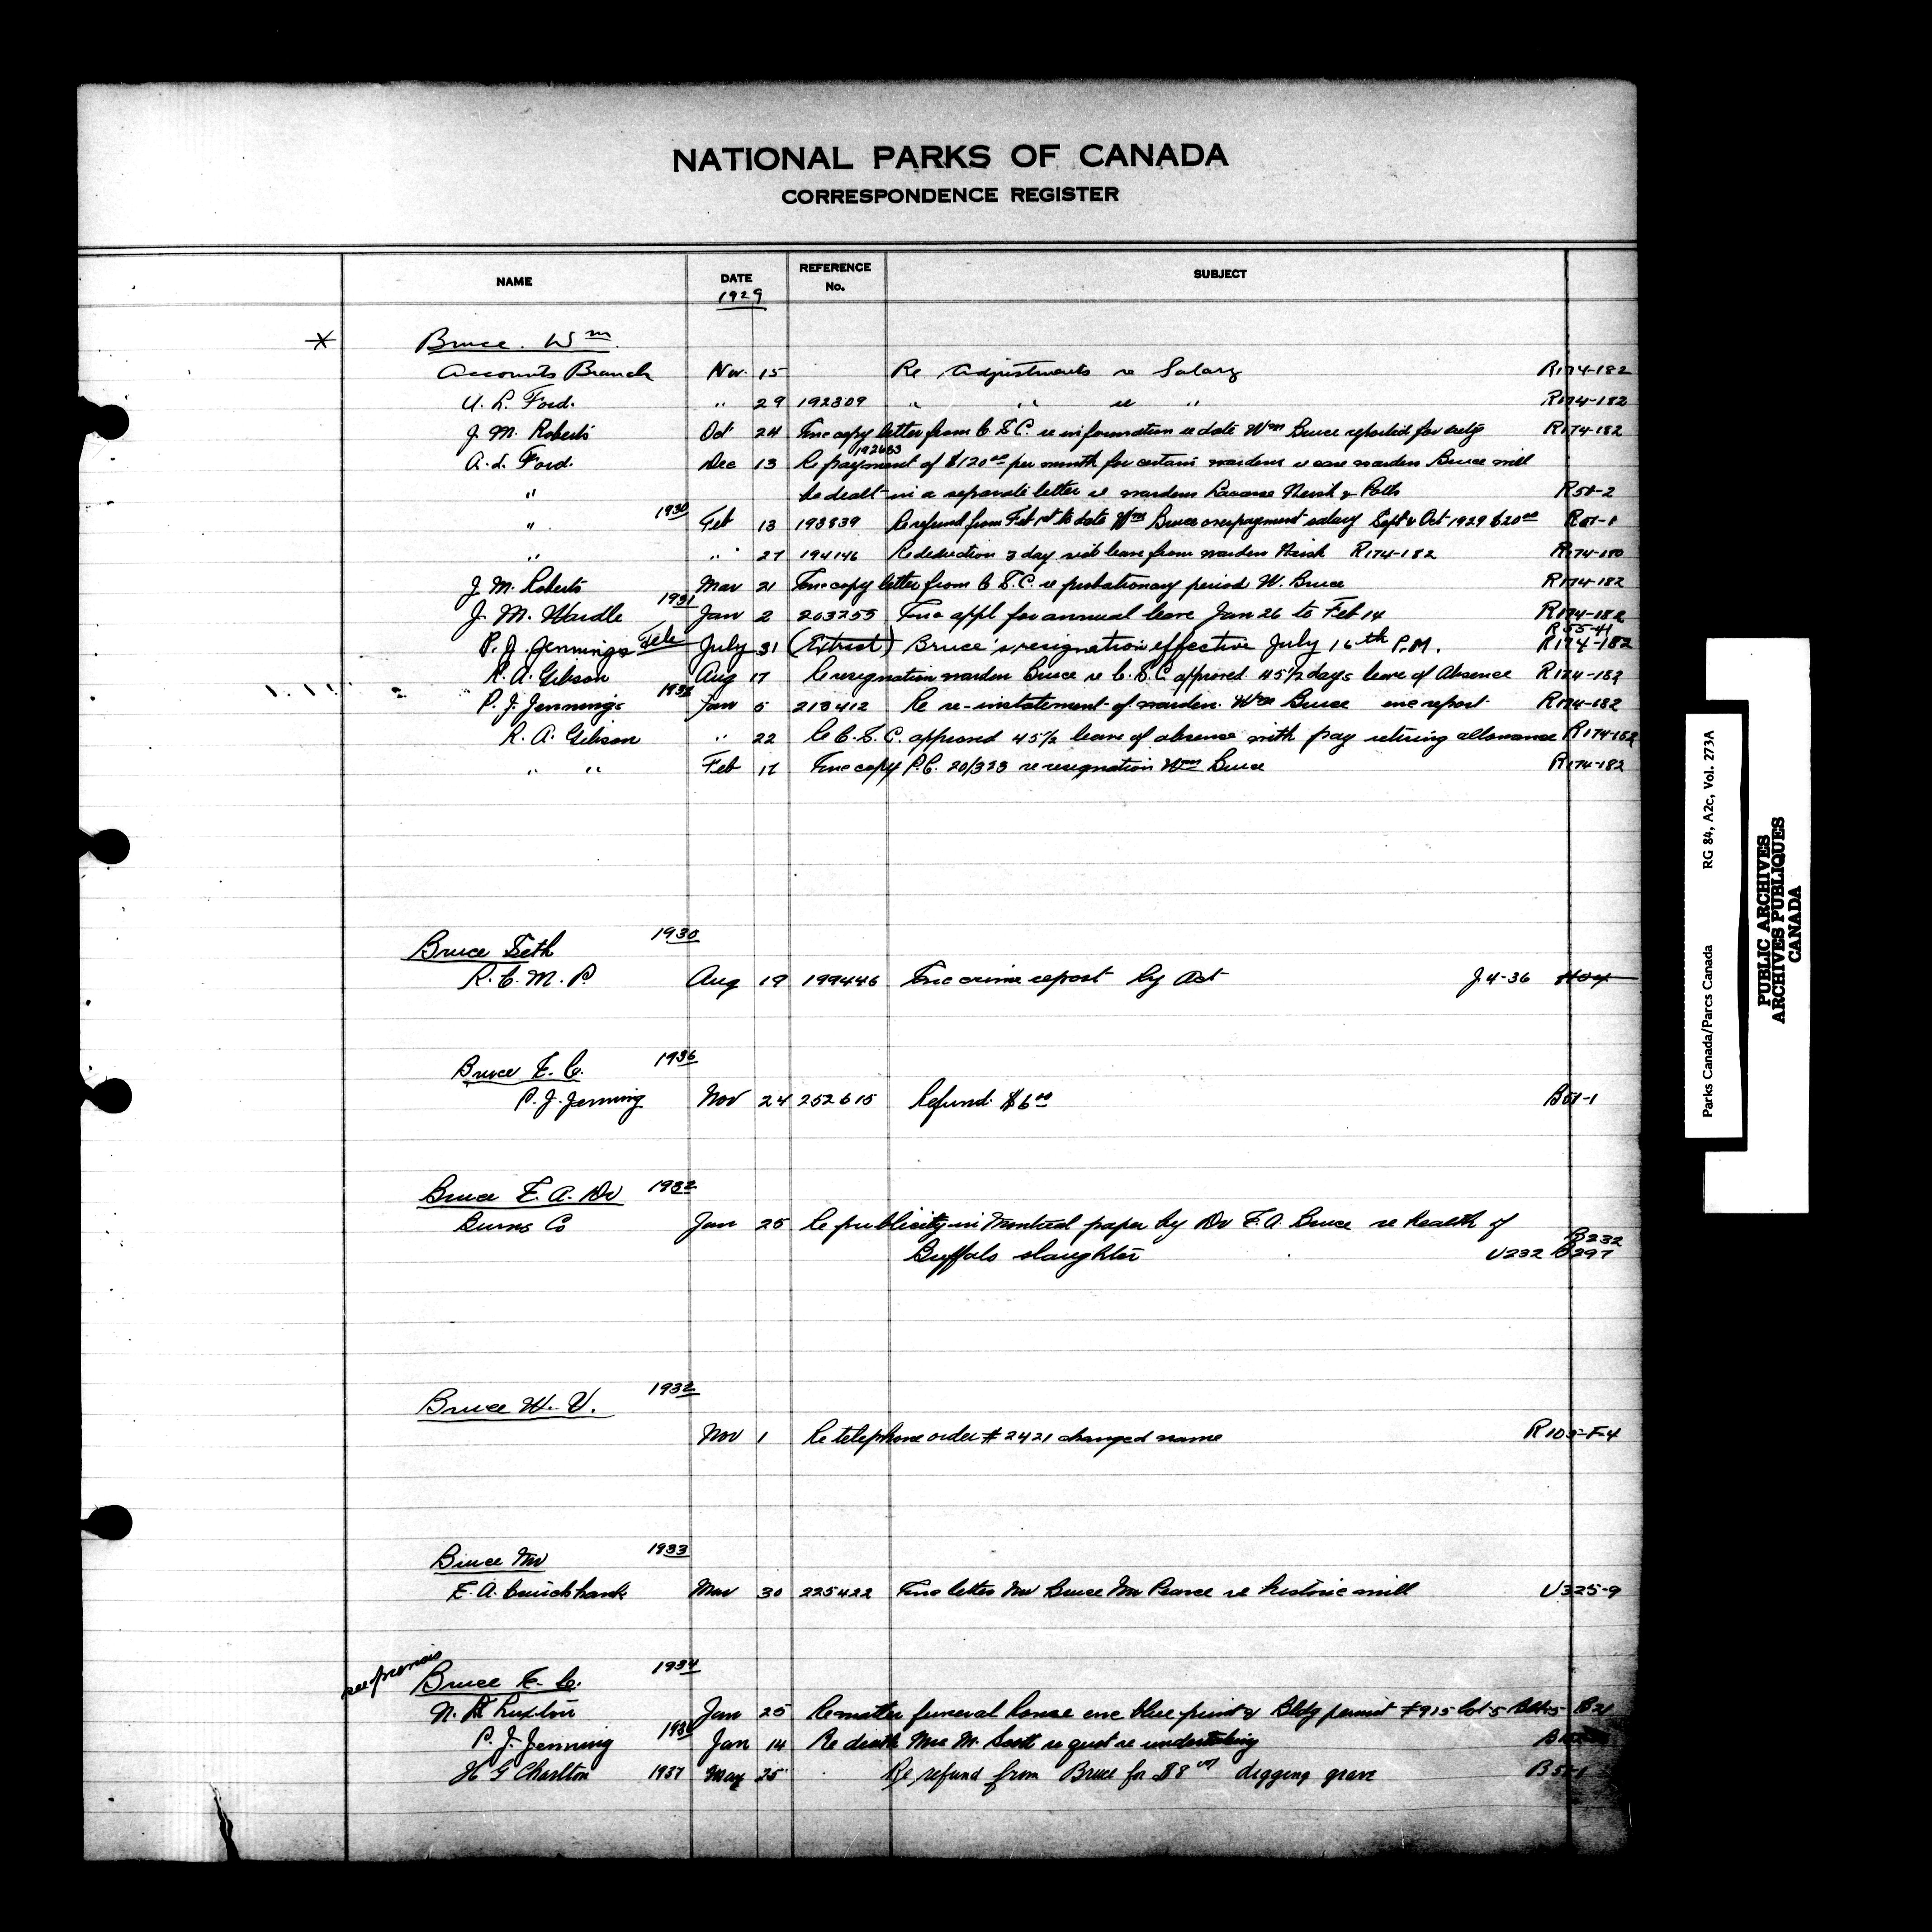 NATIONAL PARKS OF CANADA
CORRESPONDENCE REGISTER
NAME DATE REFERENCE No. SUBJECT
1929
Bruce. Wm
Accounts Branch Nov. 15 Re Adjustments re Salary R174-182
A. L. Ford. " 29 192809 " " re " R174-182
J. M. Roberts Oct 24 Enc copy letter from C.S.C. re information re date Wm Bruce reported for duty R174-182
A. L. Ford. Dec 13 Re payment of $120.00 per month for certain wardens re case warden Bruce will
" be dealt in a separate letter re wardens Neish & Potts R58-2
" 1930 Feb 13 193839 Re refund from Feb 1st to date Wm Bruce overpayment salary Sept & Oct 1929 $20.00 R51-1
" " 27 194146 Re deduction 3 day sick leave from warden Neish R174-182 R174-180
J. M. Roberts Mar 21 Enc copy letter from C.S.C. re probationary period W. Bruce R174-182
J. M. Wardle 1931 Jan 2 203255 Enc appl for annual leave Jan 26 to Feb 14 R174-182
R55-41
P. J. Jennings Tele July 31 (Extract) Bruce's resignation effective July 16th P.M. R174-182
R. A. Gibson Aug 17 Re resignation warden Bruce re C.S.C. approved 45½ days leave of Absence R174-182
P. J. Jennings 1932 Jan 5 213412 Re re-instatement of warden Wm Bruce enc report R174-182
R. A. Gibson " 22 Re C.S.C. approved 45½ leave of absence with pay retiring allowance R174-182
" " Feb 17 Enc copy P.C. 20/323 re resignation Wm Bruce R174-182
Bruce Seth 1930
R.C.M.P. Aug 19 199446 Enc crime report Act J4-36
Bruce E. C. 1936
P. J. Jenning Nov 24 252615 Refund $6.00 B51-1
Bruce E. A. Dr 1932
Burns Co Jan 25 Re publicity in Montreal paper by Dr E. A. Bruce re health of
B232
Buffalo slaughter U232 B297
Bruce W. V. 1932
Nov 1 Re telephone order # 2421 changed name R103-F-4
Bruce Mr 1933
E. A. Cruickshank Mar 30 225422 Enc letter Mr Bruce Mr Pearce re historic mill U325-9
see previous
Bruce E. C. 1934
N. K. Luxton Jan 25 Re matter funeral house enc blue print & Bldg permit #915 lot 5 Blk 5 B21
P. J. Jenning Jan 14 Re death Mrs M. Scott re undertaking
H G Charlton 1937 May 25 Re refund from Bruce for $8.00 digging grave B51-1
Parks Canada/Parcs Canada RG 84, A2c, Vol. 273A
PUBLIC ARCHIVES
ARCHIVES PUBLIQUES
CANADA